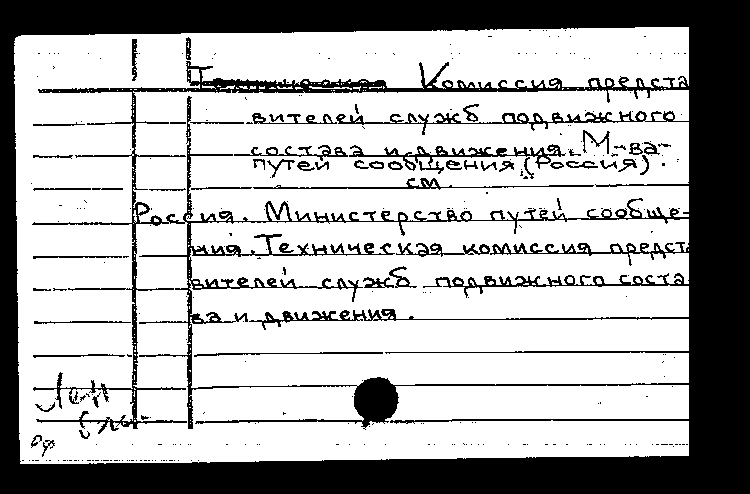 Техническая Комиссия предста
вителей служб подвижного
состава и движения. М-ва
путей сообщения (Россия).
см.
Россия. Министерство путей сообще-
ния. Техническая комиссия предст
вителей служб подвижного соста
ва и движения.
Лен